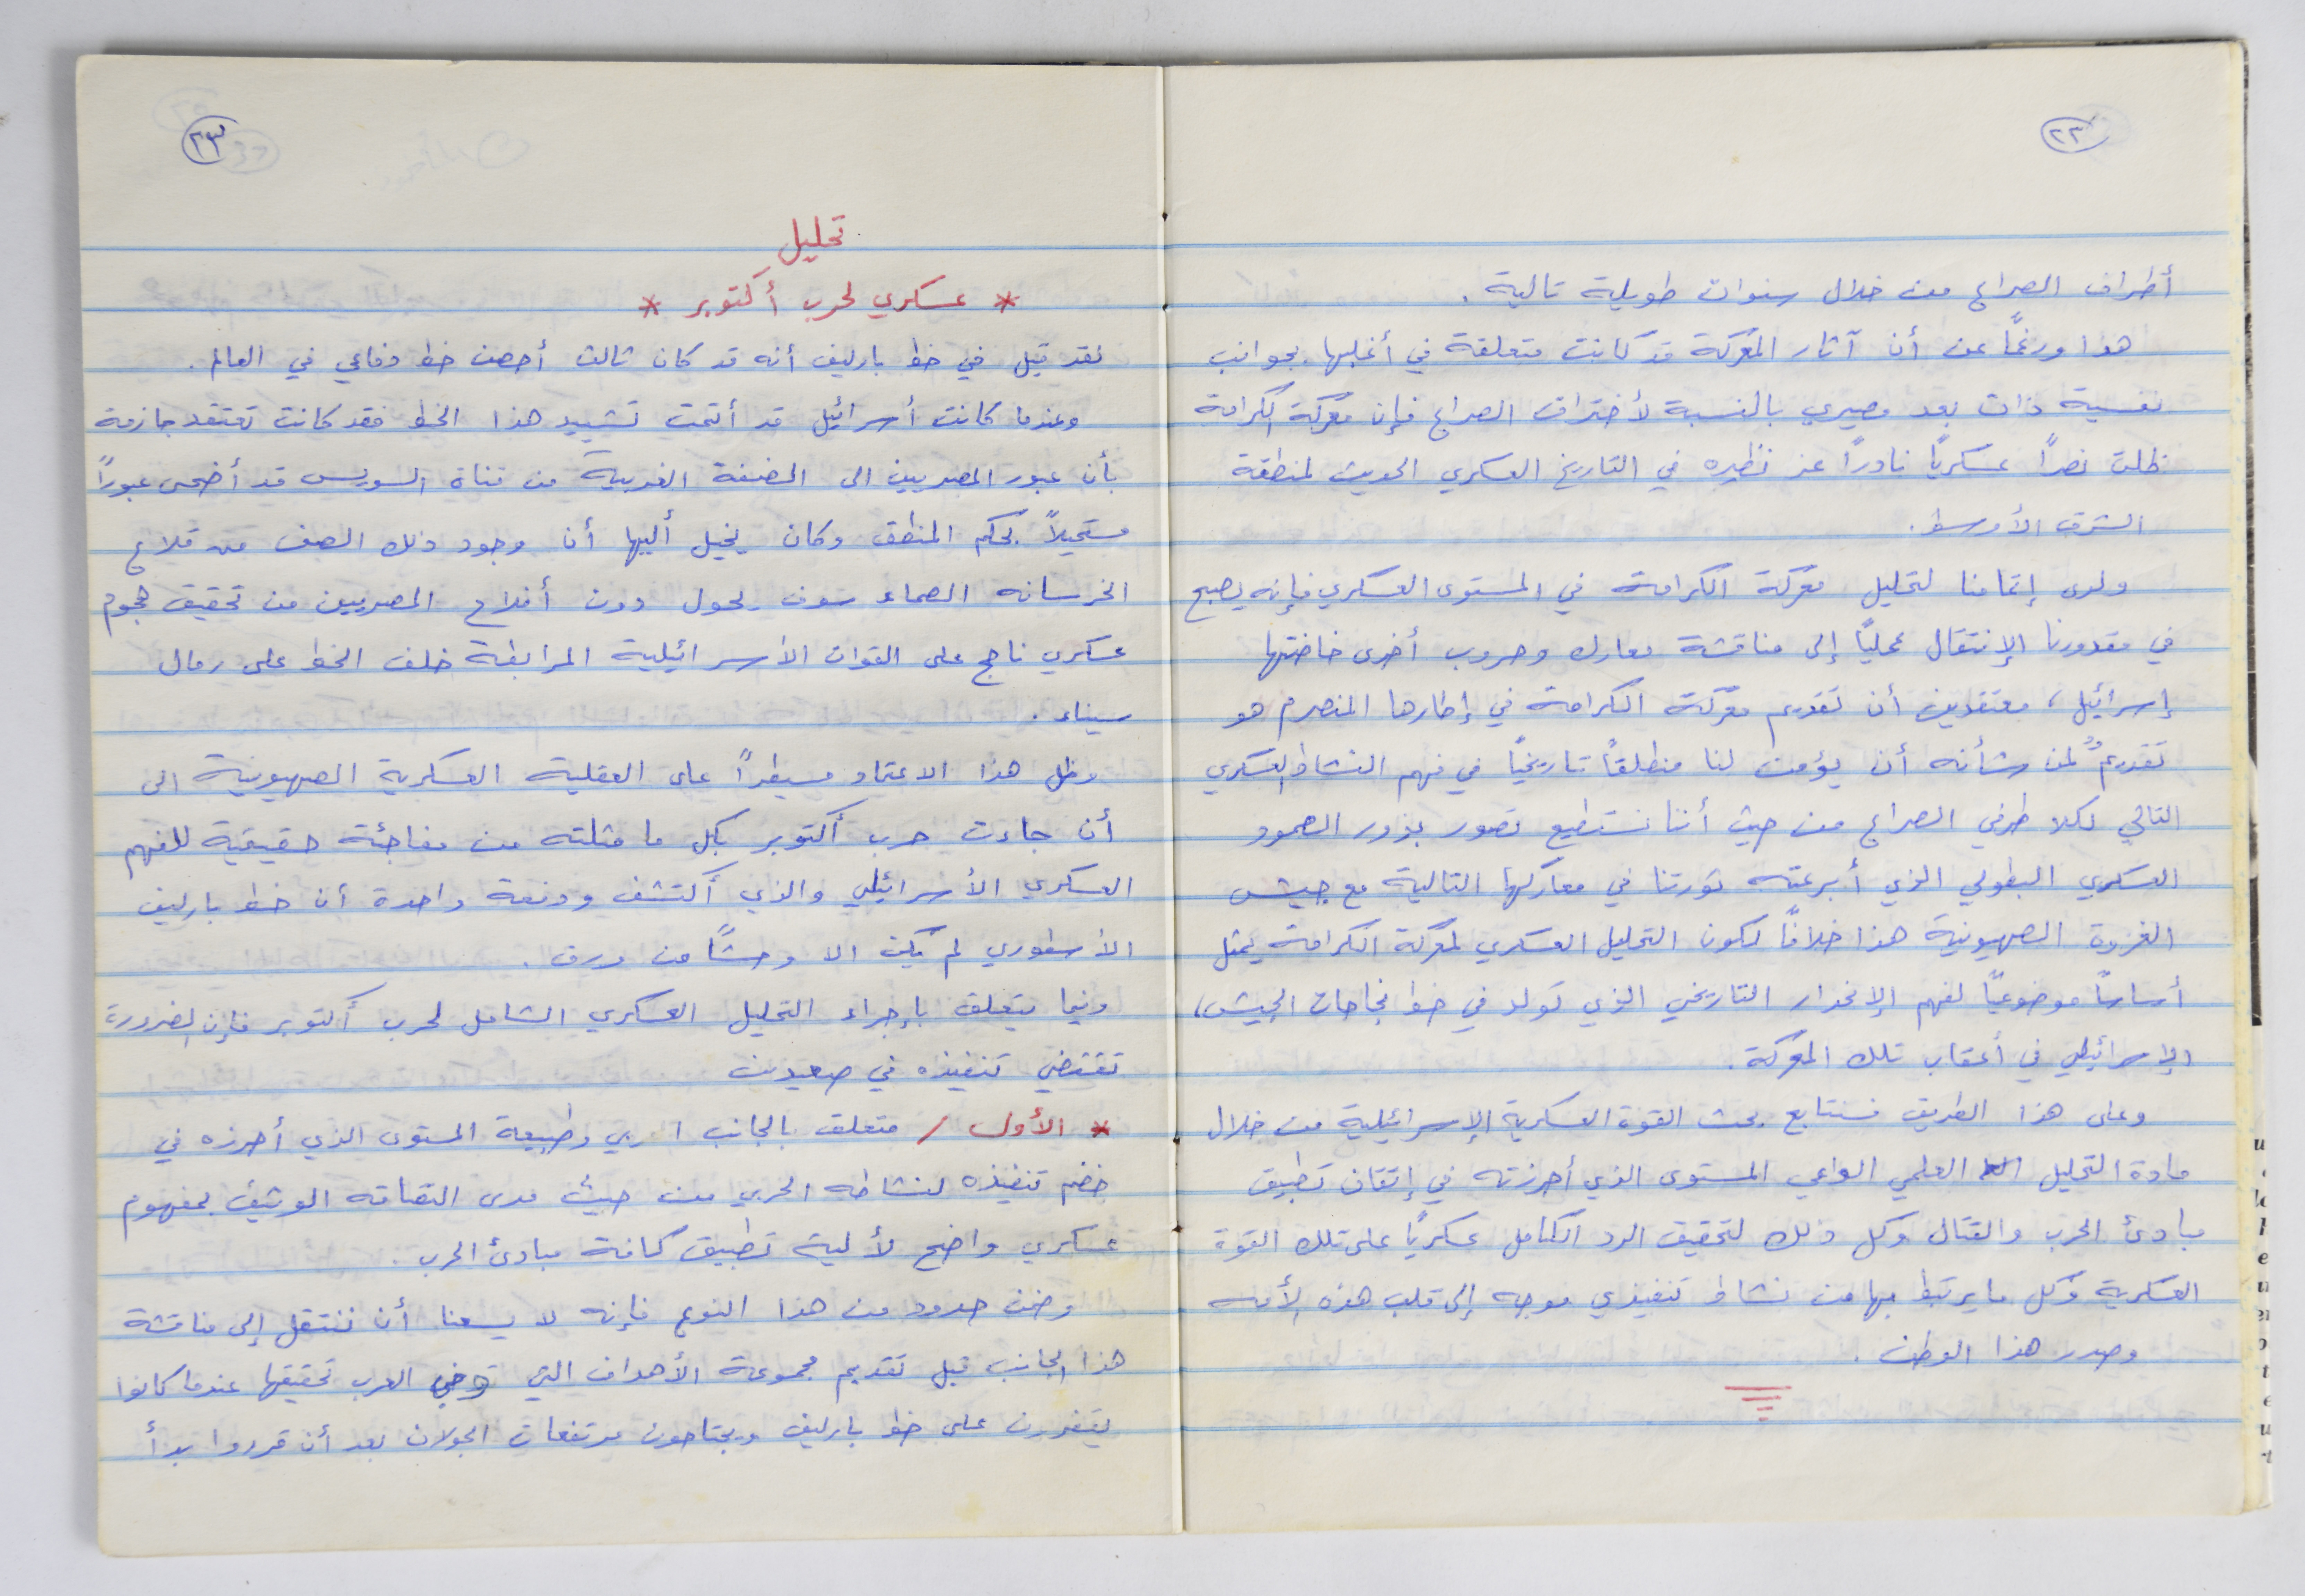 ٢٢
أطراف الصراع من خلال سنوات طويلة تالية .
هذا ورغمًا عن أن آثار المعركة قد كانت متعلقة في أغلبها بجوانب
نفسية ذات بعد مصيري بالنسبة لأختراف الصراع فإن معركة الكرامة
ظلت نصرًا عسكريًا نادرًا عز نظيره في التاريخ العسكري الحديث لمنطقة
الشرق الأوسط .
ولدى إتمامنا لتحليل معركة الكرامة في المستوى العسكري فإنه يصبح
في مقدورنا الإنتقال عمليًا إلى مناقشة معارك وحروب أخرى خاضتها
إسرائيل ، معتقدين أن تقديم معركة الكرامة في إطارها المنصرم هو
تقديمٌ لمن شأنه أن يؤمن لنا منطلقًا تاريخيًا في فهم النشاط العسكري
التالي لكلا طرفي الصراع من حيث أننا نستطيع تصور بذور الصمود
العسكري البطولي الذي أبدعته ثورتنا في معاركها التالية مع جيش
الغزوة الصهيونية هذا خلافًا لكون التحليل العسكري لمعركة الكرامة يمثل
أساسًا موضوعيًا لفهم الإنحدار التاريخي الذي تولد في خط نجاحات الجيش ،
الإسرائيلي في أعقاب تلك المعركة .
وعلى هذا الطريق فسنتابع بحث القوة العسكرية الإسرائيلية من خلال
مادة التحليل العلمي الواعي المستوى الذي أحرزته في إتقان تطبيق
مبادئ الحرب والقتال وكل ذلك لتحقيق الرد الكامل عسكريًا على تلك القوة
العسكرية وكل ما يرتبط بها من نشاط تنفيذي موجه إلى قلب هذه الأمه
وصدر هذا الوطن .
٢٣
تحليل
* عسكري لحرب أكتوبر *
لقد قيل في خط بارليف أنه قد كان ثالث أحصن خط دفاعي في العالم .
وعندما كانت أسرائيل قد أتمت تشييد هذا الخط فقد كانت تعتقد جازمة
بأن عبور المصريين الى الضفة الغربية من قناة السويس قد أضحى عبورًا
مستحيلاً بحكم المنطق وكان يخيل أليها أن وجود ذلك الصف من قلاع
الخرسانه الصماء سوف يحول دون أفلاح المصريين من تحقيق هجوم
عسكري ناجح على القوات الأسرائيلية المرابطة خلف الخط على رمال
سيناء .
وظل هذا الاعتماد مسيطرًا على العقلية العسكرية الصهيونية الى
أن جاءت حرب أكتوبر بكل ما مثلته من مفاجئة حقيقية للفهم
العسكري الأسرائيلي والذي أكتشف ودفعة واحدة أن خط بارليف
الأسطوري لم يكن الا وحشًا من ورق .
وفيما يتعلق بإجراء التحليل العسكري الشامل لحرب أكتوبر فإن الضرورة
تقتضي تنفيذه في صعيدين
* الأول / متعلق بالجانب وطبيعة المستوى الذي أحرزه في
خضم تنفيذه لنشاطه الحربي من حيث مدى التصاقه الوثيق بمفهوم
عسكري واضح لألية تطبيق كافة مبادئ الحرب .
وضمن حدود من هذا النوع فإنه لا يسعنا أن ننتقل إلى مناقشة
هذا الجانب قبل تقديم مجموعة الأهداف التي العرب تحقيقها عندما كانوا
يقفزون على خط بارليف ويجتاحون مرتفعات الجولان بعد أن قرروا بدأ